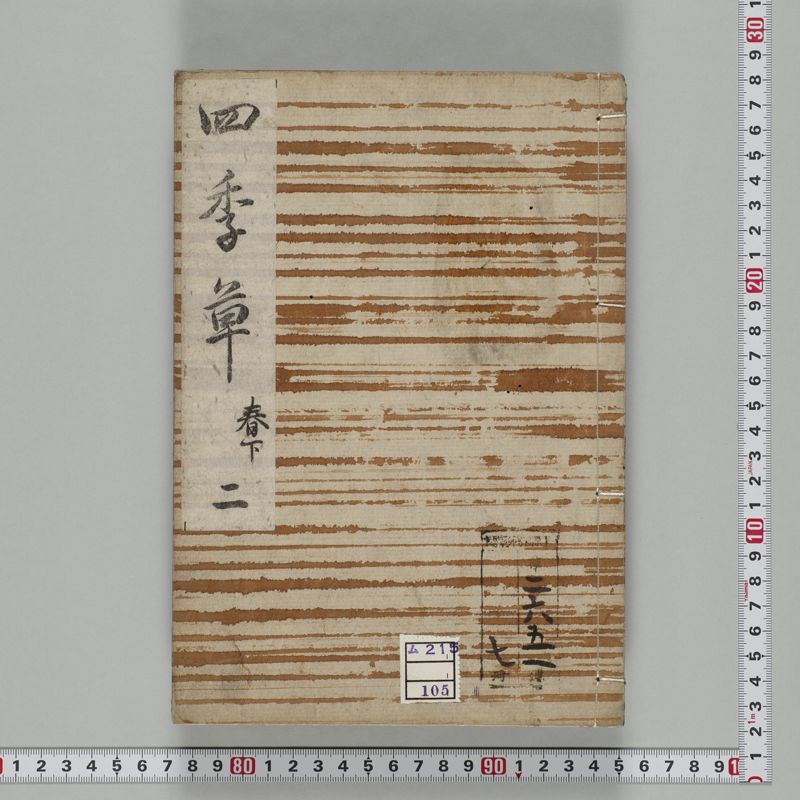 四季草
春下
二
二六五二
七
ム215
105